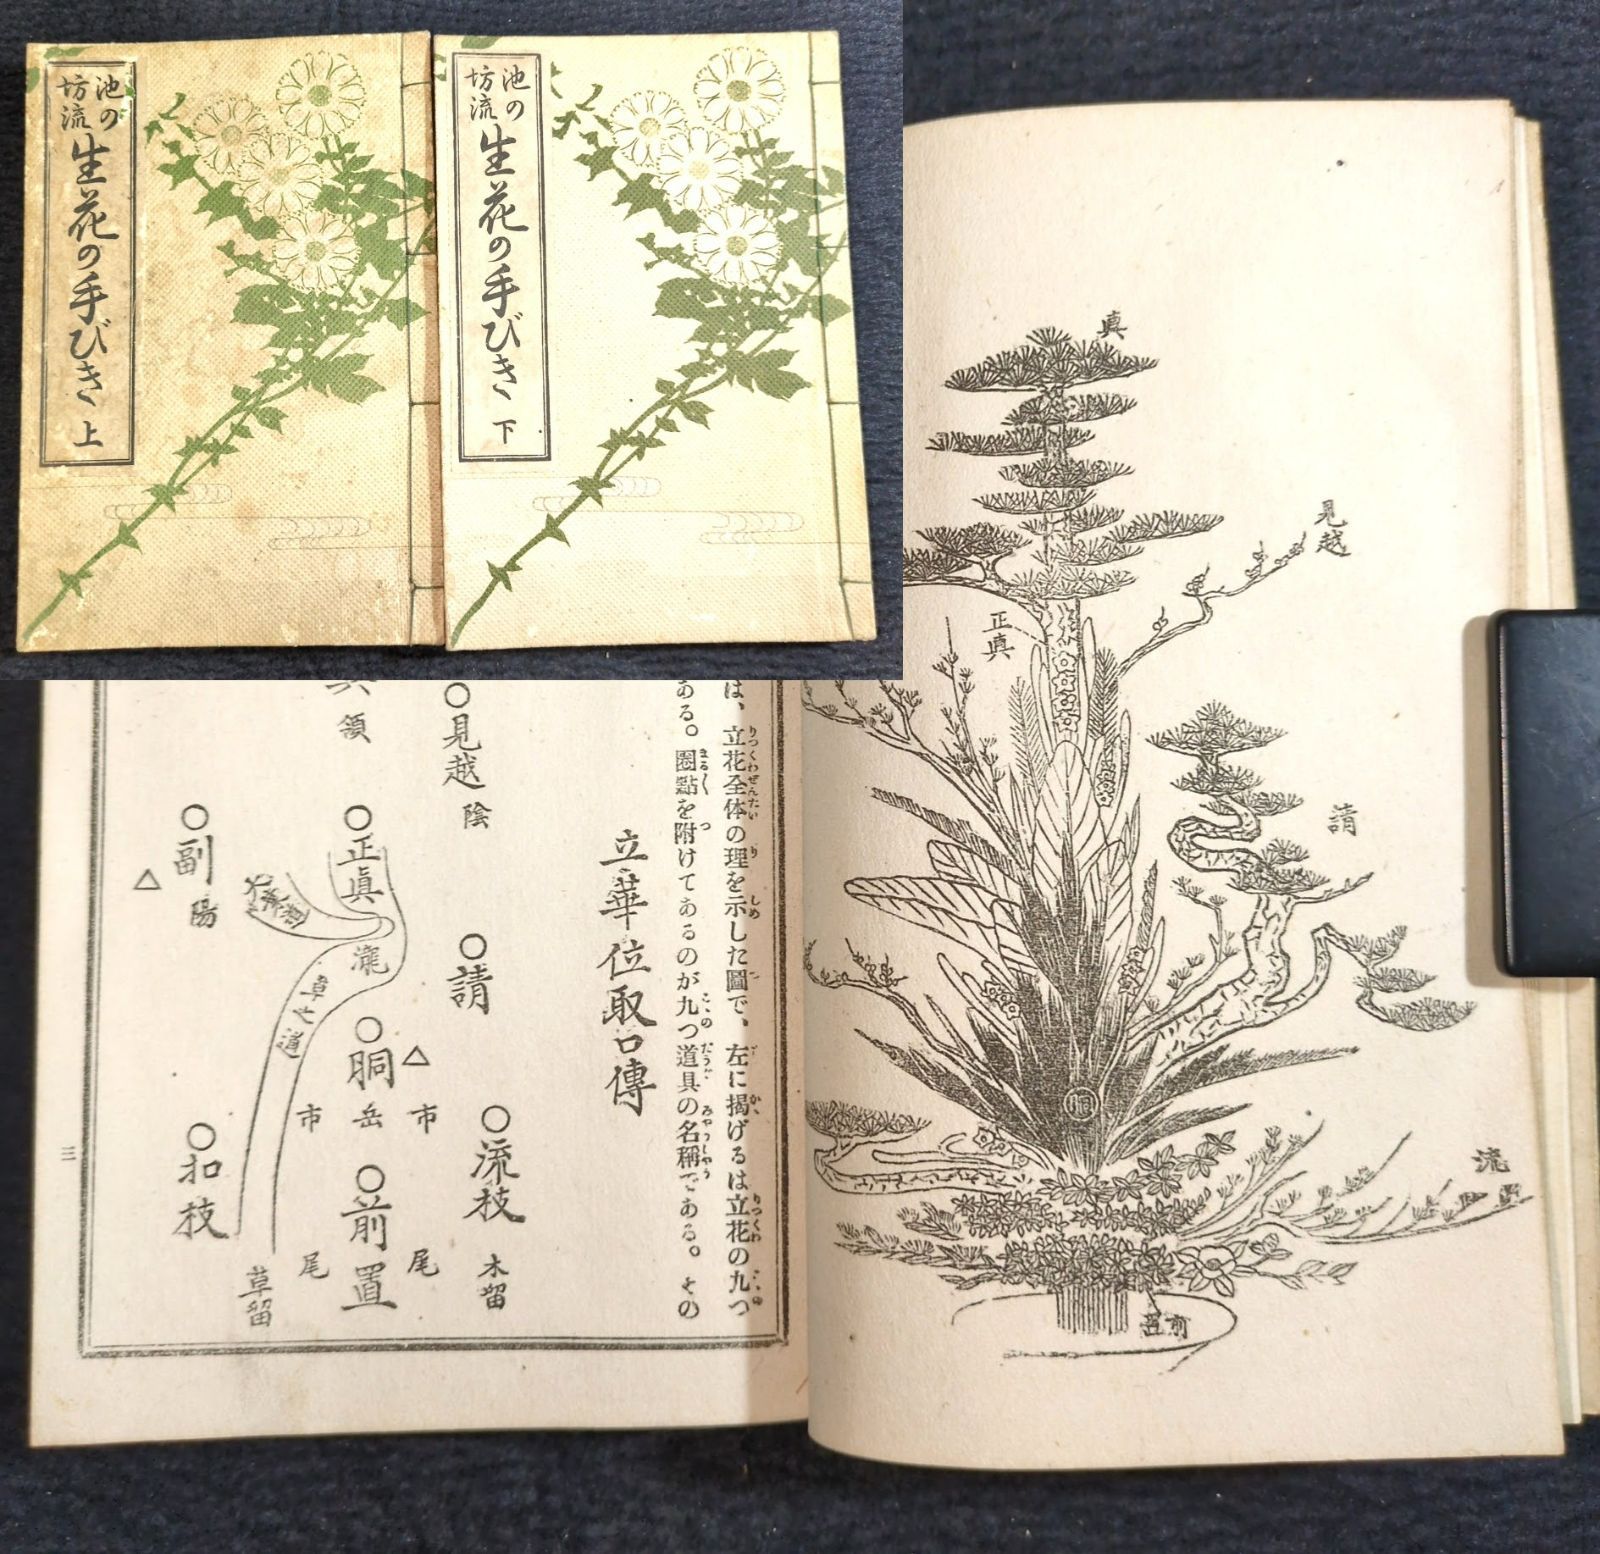 池の
坊流
生花の手びき 上
池の
坊流
生花の手びき 下
眞
見越
正眞
請
胴
流
前置
は、立花全体の理を示した圖で、左に揭げるは立花の九つ
ある。圏點を附けてあるのが九つ道具の名稱である。その
立華位取口傳
○見越 陰
○請
○流枝
木留
領
○正眞
瀧
○胴
△
市 岳 市
○前置
尾 尾
草之道
○副 陽
△
○扣枝
草留
三